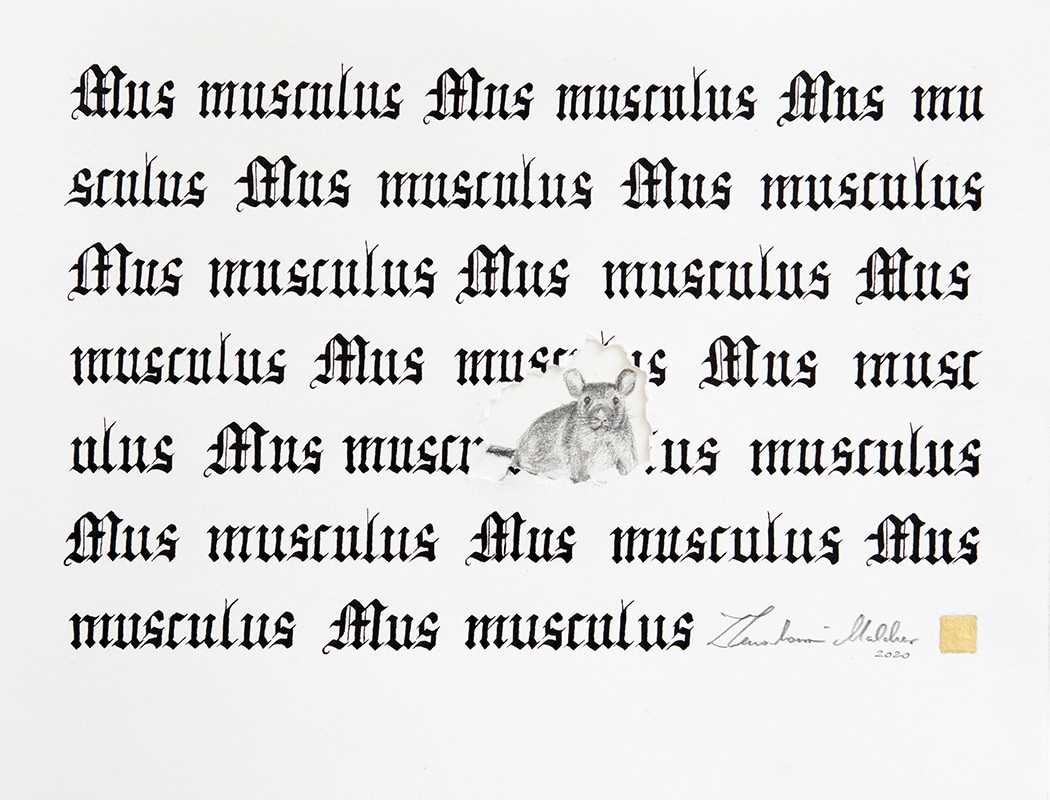 Mus musculus Mus musculus Mus mu
sculus Mus musculus Mus musculus
Mus musculus Mus musculus Mus
musculus Mus musc us Mus musc
ulus Mus muscu lus musculus
Mus musculus Mus musculus Mus
musculus Mus musculus
2020